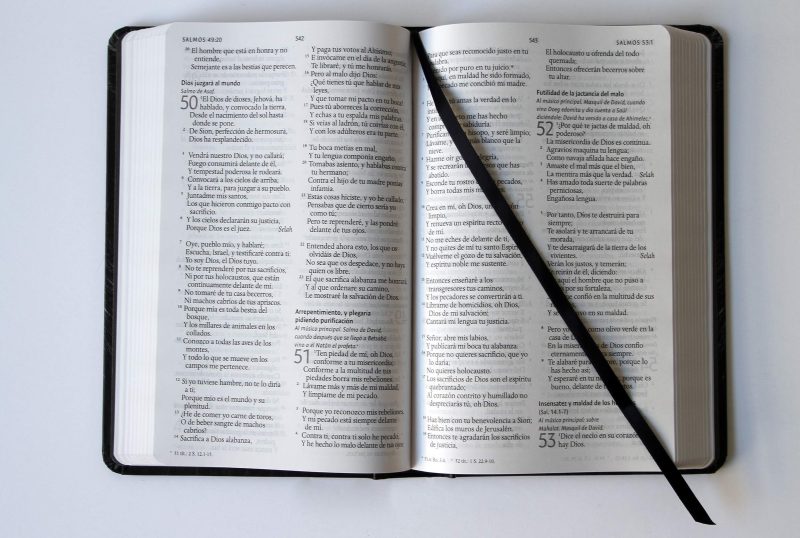 SALMOS 49:20
542
20 El hombre que está en honra y no
entiende,
Semejante es a las bestias que perecen.
Dios juzgará al mundo
Salmo de Asaf.
50 1El Dios de dioses, Jehová, ha
hablado, y convocado la tierra,
Desde el nacimiento del sol hasta
donde se pone.
2 De Sion, perfección de hermosura,
Dios ha resplandecido.
3 Vendrá nuestro Dios, y no callará;
Fuego consumirá delante de él,
Y tempestad poderosa le rodeará.
4 Convocará a los cielos de arriba,
Y a la tierra, para juzgar a su pueblo.
5 Juntadme mis santos,
Los que hicieron conmigo pacto con
sacrificio.
6 Y los cielos declararán su justicia,
Porque Dios es el juez. Selah
7 Oye, pueblo mío, y hablaré;
Escucha, Israel, y testificaré contra ti:
Yo soy Dios, el Dios tuyo.
8 No te reprenderé por tus sacrificios,
Ni por tus holocaustos, que están
continuamente delante de mí.
9 No tomaré de tu casa becerros,
Ni machos cabríos de tus apriscos.
10 Porque mía es toda bestia del
bosque,
Y los millares de animales en los
collados.
11 Conozco a todas las aves de los
montes,
Y todo lo que se mueve en los
campos me pertenece.
12 Si yo tuviese hambre, no te lo diría
a ti;
Porque mío es el mundo y su
plenitud.
13 ¿He de comer yo carne de toros,
O de beber sangre de machos
cabríos?
14 Sacrifica a Dios alabanza,
Y paga tus votos al Altísimo;
15 E invócame en el día de la angustia;
Te libraré, y tú me honrarás.
16 Pero al malo dijo Dios:
¿Qué tienes tú que hablar de mis
leyes,
Y que tomar mi pacto en tu boca?
17 Pues tú aborreces la corrección,
Y echas a tu espalda mis palabras.
18 Si veías al ladrón, tú corrías con él,
Y con los adúlteros era tu parte.
19 Tu boca metías en mal,
Y tu lengua componía engaño.
20 Tomabas asiento, y hablabas contra
tu hermano;
Contra el hijo de tu madre ponías
infamia.
21 Estas cosas hiciste, y yo he callado;
Pensabas que de cierto sería yo
como tú;
Pero te reprenderé, y las pondré
delante de tus ojos.
22 Entended ahora esto, los que os
olvidáis de Dios,
No sea que os despedace, y no haya
quien os libre.
23 El que sacrifica alabanza me honrará;
Y al que ordenare su camino,
Le mostraré la salvación de Dios.
Arrepentimiento, y plegaria
pidiendo purificación
Al músico principal. Salmo de David,
cuando después que se llegó a Betsabé,
vino a él Natán el profeta.
51 1Ten piedad de mí, oh Dios,
conforme a tu misericordia;
Conforme a la multitud de tus
piedades borra mis rebeliones.
2 Lávame más y más de mi maldad,
Y límpiame de mi pecado.
3 Porque yo reconozco mis rebeliones,
Y mi pecado está siempre delante
de mí.
4 Contra ti, contra ti solo he pecado,
Y he hecho lo malo delante de tus ojos
543
SALMOS 53:1
Para que seas reconocido justo en tu
palabra,
por puro en tu juicio.
en maldad he sido formado,
me concibió mi madre.
tú amas la verdad en lo
me has hecho
sabiduría.
7 hisopo, y seré limpio;
Lávame, blanco que la
nieve.
8 Hazme oír alegría,
Y se recrearán que has
abatido.
9 Esconde tu rostro pecados,
Y borra todas mis
10 Crea en mí, oh Dios, un
limpio,
Y renueva un espíritu recto
de mí.
11 No me eches de delante de ti,
Y no quites de mí tu santo Espíritu.
12 Vuélveme el gozo de tu salvación,
Y espíritu noble me sustente.
13 Entonces enseñaré a los
transgresores tus caminos,
Y los pecadores se convertirán a ti.
14 Líbrame de homicidios, oh Dios,
Dios de mi salvación;
Cantará mi lengua tu justicia.
15 Señor, abre mis labios,
Y publicará mi boca tu alabanza.
16 Porque no quieres sacrificio, que yo
lo daría;
No quieres holocausto.
17 Los sacrificios de Dios son el espíritu
quebrantado;
Al corazón contrito y humillado no
despreciarás tú, oh Dios.
18 Haz bien con tu benevolencia a Sion;
Edifica los muros de Jerusalén.
19 Entonces te agradarán los sacrificios
de justicia,
El holocausto u ofrenda del todo
quemada;
Entonces ofrecerán becerros sobre
tu altar.
Futilidad de la jactancia del malo
Al músico principal. Masquil de David, cuando
vino Doeg edomita y dio cuenta a Saúl
diciéndole: David ha venido a casa de Ahimelec.
52 1¿Por qué te jactas de maldad, oh
poderoso?
La misericordia de Dios es continua.
2 Agravios maquina tu lengua;
Como navaja afilada hace engaño.
3 Amaste el mal más que el bien,
La mentira más que la verdad. Selah
4 Has amado toda suerte de palabras
perniciosas,
Engañosa lengua.
5 Por tanto, Dios te destruirá para
siempre;
Te asolará y te arrancará de tu
morada,
Y te desarraigará de la tierra de los
vivientes. Selah
Verán los justos, y temerán;
reirán de él, diciendo:
aquí el hombre que no puso a
por su fortaleza,
confió en la multitud de sus
Y se en su maldad.
8 Pero yo como olivo verde en la
casa de
En la misericordia de Dios confío
eternamente y siempre.
9 Te alabaré para porque lo
has hecho así;
Y esperaré en tu porque es
bueno, delante de
Insensatez y maldad de los
(Sal. 14.1-7)
Al músico principal; sobre
Mahalat. Masquil de David.
53 1Dice el necio en su corazón:
hay Dios.